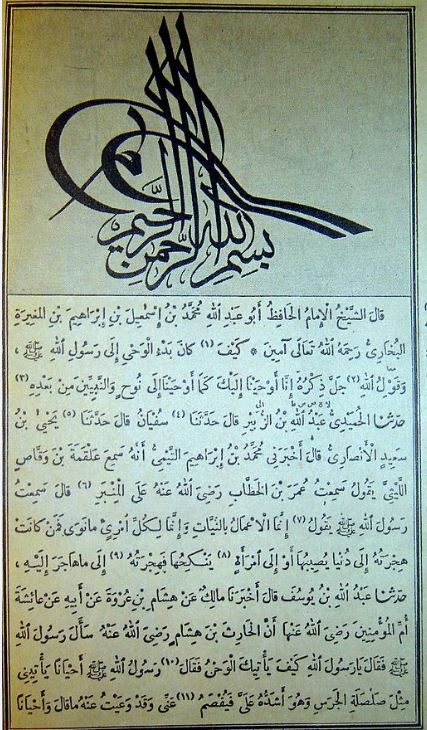 بسم الله الرحمن الرحيم
قالَ الشَّيْخُ الإِمامُ الحافِظُ أَبُو عَبْدِ اللهِ مُحَمَّدُ بْنُ إِسْمٰعِيلَ بْنِ إِبْراهِيمَ بْنِ المُغِيرَةِ
البُخارِىُّ رَحِمَهُ اللهُ تَعالَى آمِينَ * كَيْفَ (١) كانَ بَدْءُ الوَحْىِ إِلَى رَسُولِ اللهِ ﷺ ،
وَقَوْلُ اللهِ (٢) جَلَّ ذِكْرُهُ إِنَّا أَوْحَيْنا إِلَيْكَ كَمَا أَوْحَيْنا إِلَى نُوحٍ وَالنَّبِيِّينَ مِنْ بَعْدِهِ (٣)
حَدَّثَنا الحُمَيْدِىُّ عَبْدُ اللهِ بْنُ الزُّبَيْرِ قالَ حَدَّثَنا (٤) سُفْيانُ قالَ حَدَّثَنا (٥) يَحْيَى بْنُ
سَعِيدٍ الأَنْصارِىُّ قالَ أَخْبَرَنِى مُحَمَّدُ بْنُ إِبْراهِيمَ التَّيْمِىُّ أَنَّهُ سَمِعَ عَلْقَمَةَ بْنَ وَقَّاصٍ
اللَّيْثِىَّ يَقُولُ سَمِعْتُ عُمَرَ بْنَ الخَطَّابِ رَضِىَ اللهُ عَنْهُ عَلَى المِنْبَرِ (٦) قالَ سَمِعْتُ
رَسُولَ اللهِ ﷺ يَقُولُ (٧) إِنَّمَا الأَعْمالُ بالنِّيَّاتِ وَإِنَّمَا لِكُلِّ امْرِئٍ مانَوَى فَمَنْ كانَتْ
هِجْرَتُهُ إِلَى دُنْيا يُصِيبُها أَوْ إِلَى امْرَأَةٍ (٨) يَنْكِحُها فَهِجْرَتُهُ (٩) إِلَى ماهاجَرَ إِلَيْهِ ،
حَدَّثَنا عَبْدُ اللهِ بْنُ يُوسُفَ قالَ أَخْبَرَنا مالِكٌ عَنْ هِشامِ بْنِ عُرْوَةَ عَنْ أَبِيهِ عَنْ عائِشَةَ
أُمِّ المُؤْمِنِينَ رَضِىَ اللهُ عَنْها أَنَّ الحارِثَ بْنَ هِشامٍ رَضِىَ اللهُ عَنْهُ سَأَلَ رَسُولَ اللهِ
ﷺ فَقالَ يا رَسُولَ اللهِ كَيْفَ يَأْتِيكَ الوَحْىُ فَقالَ (١٠) رَسُولُ اللهِ ﷺ أَحْيانًا يَأْتِينِى
مِثْلَ صَلْصَلَةِ الجَرَسِ وَهُوَ أَشَدُّهُ عَلَىَّ فَيُفْصَمُ (١١) عَنِّى وَقَدْ وَعَيْتُ عَنْهُ ماقالَ وَأَحْيانًا